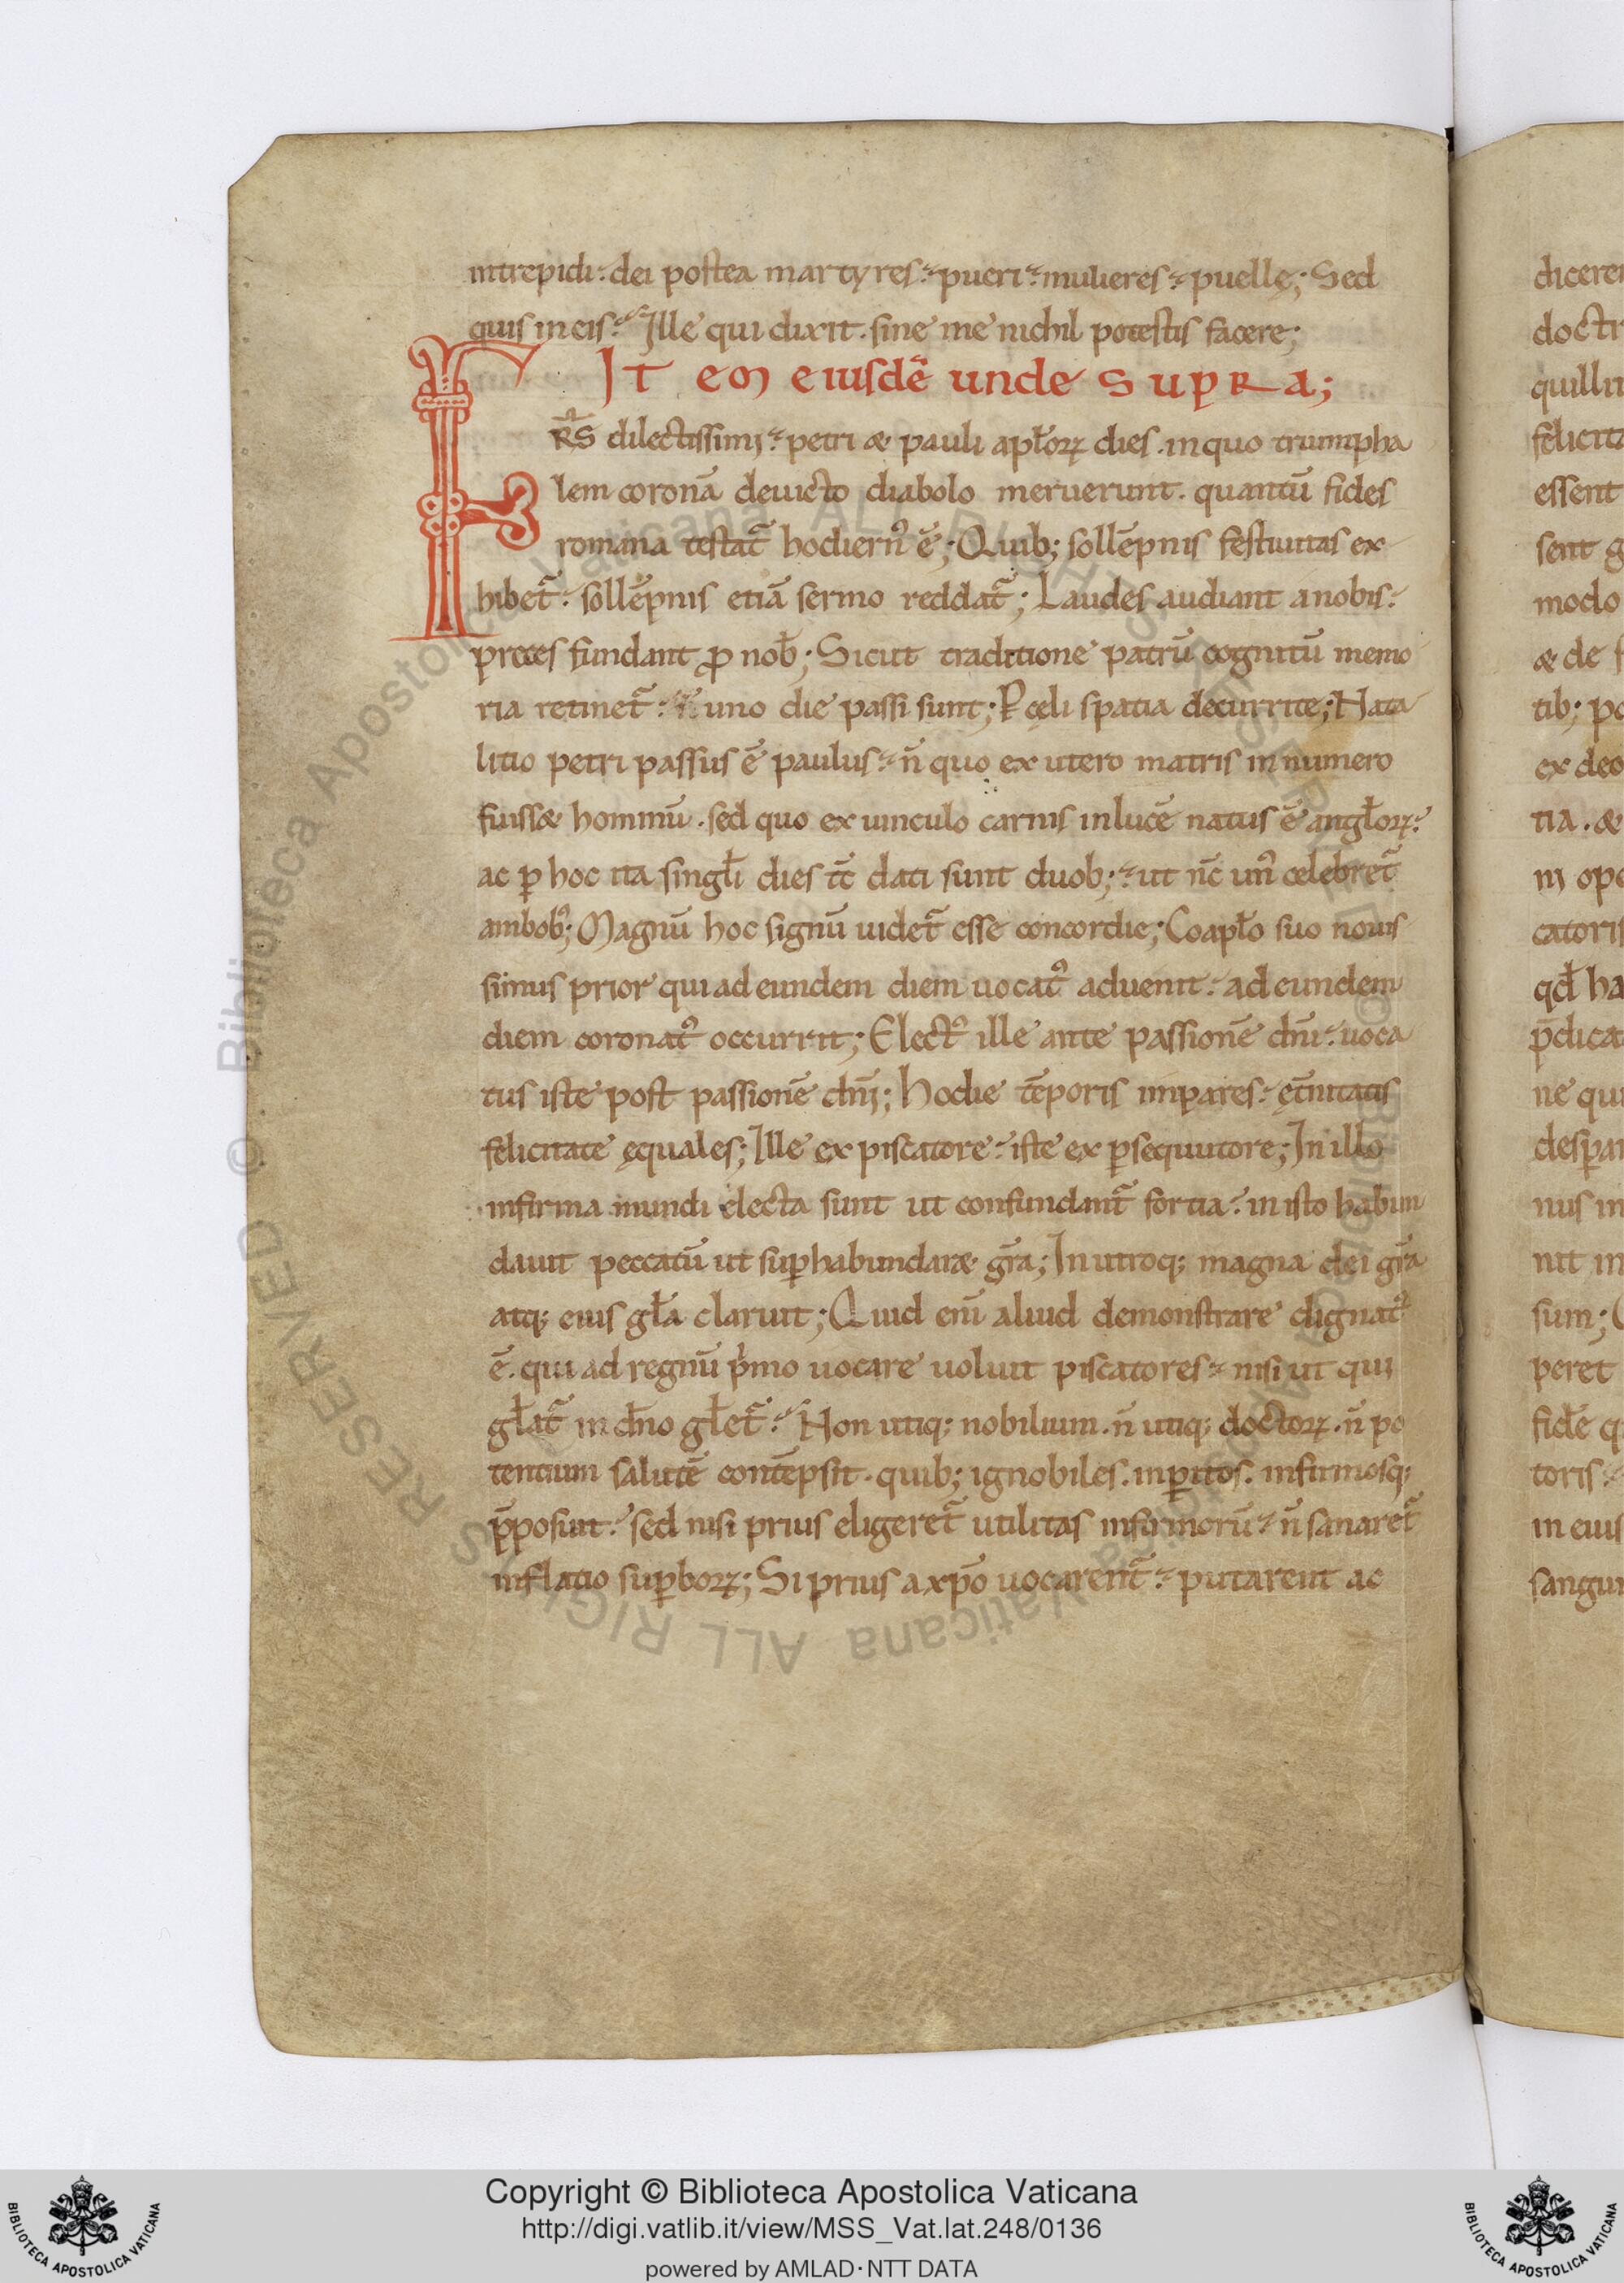 intrepidi. dei postea martyres. pueri. mulieres. puellę; Sed
quis in eis. Ille qui dixit. sine me nichil potestis facere;
ITem eiusdē unde supRa;
FRS dilectissimi. petri & pauli apłorꝝ dies. inquo triumpha
lem coronā deuicto diabolo meruerunt. quantū fides
romana testat᷑ hodiernꝰ ē; Quib; sollēpnis festiuitas ex
hibet᷑. sollēpnis etiā sermo reddat᷑; Laudes audiant anobis.
preces fundant ꝓ nob̄; Sicut traditione patrū cognitū memo
ria retinet᷑. uno die passi sunt; P cęli spatia decurrite; Nata
litio petri passus ē paulus. n̄ quo ex utero matris in numero
fuiss& hominū. sed quo ex uinculo carnis inlucē natus ē angłorꝝ.
ac ꝑ hoc ita singłi dies tc̄ dati sunt duob;. ut nc̄ unꝰ celebret᷑
ambobꝰ; Magnū hoc signū uidet᷑ esse concordie; Coapło suo nouis
simus prior qui ad eundem diem uocatꝰ aduenit. ad eundem
diem coronatꝰ occurrit; Electꝰ ille ante passionē dn̄i. uoca
tus iste post passionē dn̄i; hodie tēporis impares. ęt̄nitatis
felicitate ęquales; Ille ex piscatore. iste ex ꝑsequutore; In illo
infirma mundi electa sunt ut confundant᷑ fortia. in isto habun
dauit peccatū ut suꝑhabundar& gr̄a; In utroq; magna dei gr̄a
atq; eius gła claruit; Quid eni̅ aliud demonstrare dignatꝰ
ē. qui ad regnū p̍mo uocare uoluit piscatores. nisi ut qui
głat᷑ in dn̄o głet᷑. Non utiq; nobilium. n̄ utiq; doctorꝝ. n̄ po
tentium salutē contēpsit. quib; ignobiles. inꝑitos. infirmosq;
p̄posuit. sed nisi prius eligeret᷑ utilitas infirmorū. n̄ sanaret᷑
inflatio suꝑborꝝ; Si prius a xp̄o uocarent᷑. putarent ac
dicere
doctr
quilli
felicita
essent
sent g
modo
& de f
tib; po
ex deo
tia. &
in ope
catoris
qd̄ ha
p̄dica
ne qui
desꝑa
nus in
nit in
sum;
peret
fidē q
toris
in eius
sangui
© Biblioteca Apostolica Vaticana ALL RIGHTS RESERVED
© Biblioteca Apostolica Vaticana ALL RIGHTS RESERVED
Copyright © Biblioteca Apostolica Vaticana
http://digi.vatlib.it/view/MSS_Vat.lat.248/0136
powered by AMLAD·NTT DATA
BIBLIOTECA APOSTOLICA VATICANA
BIBLIOTECA APOSTOLICA VATICANA